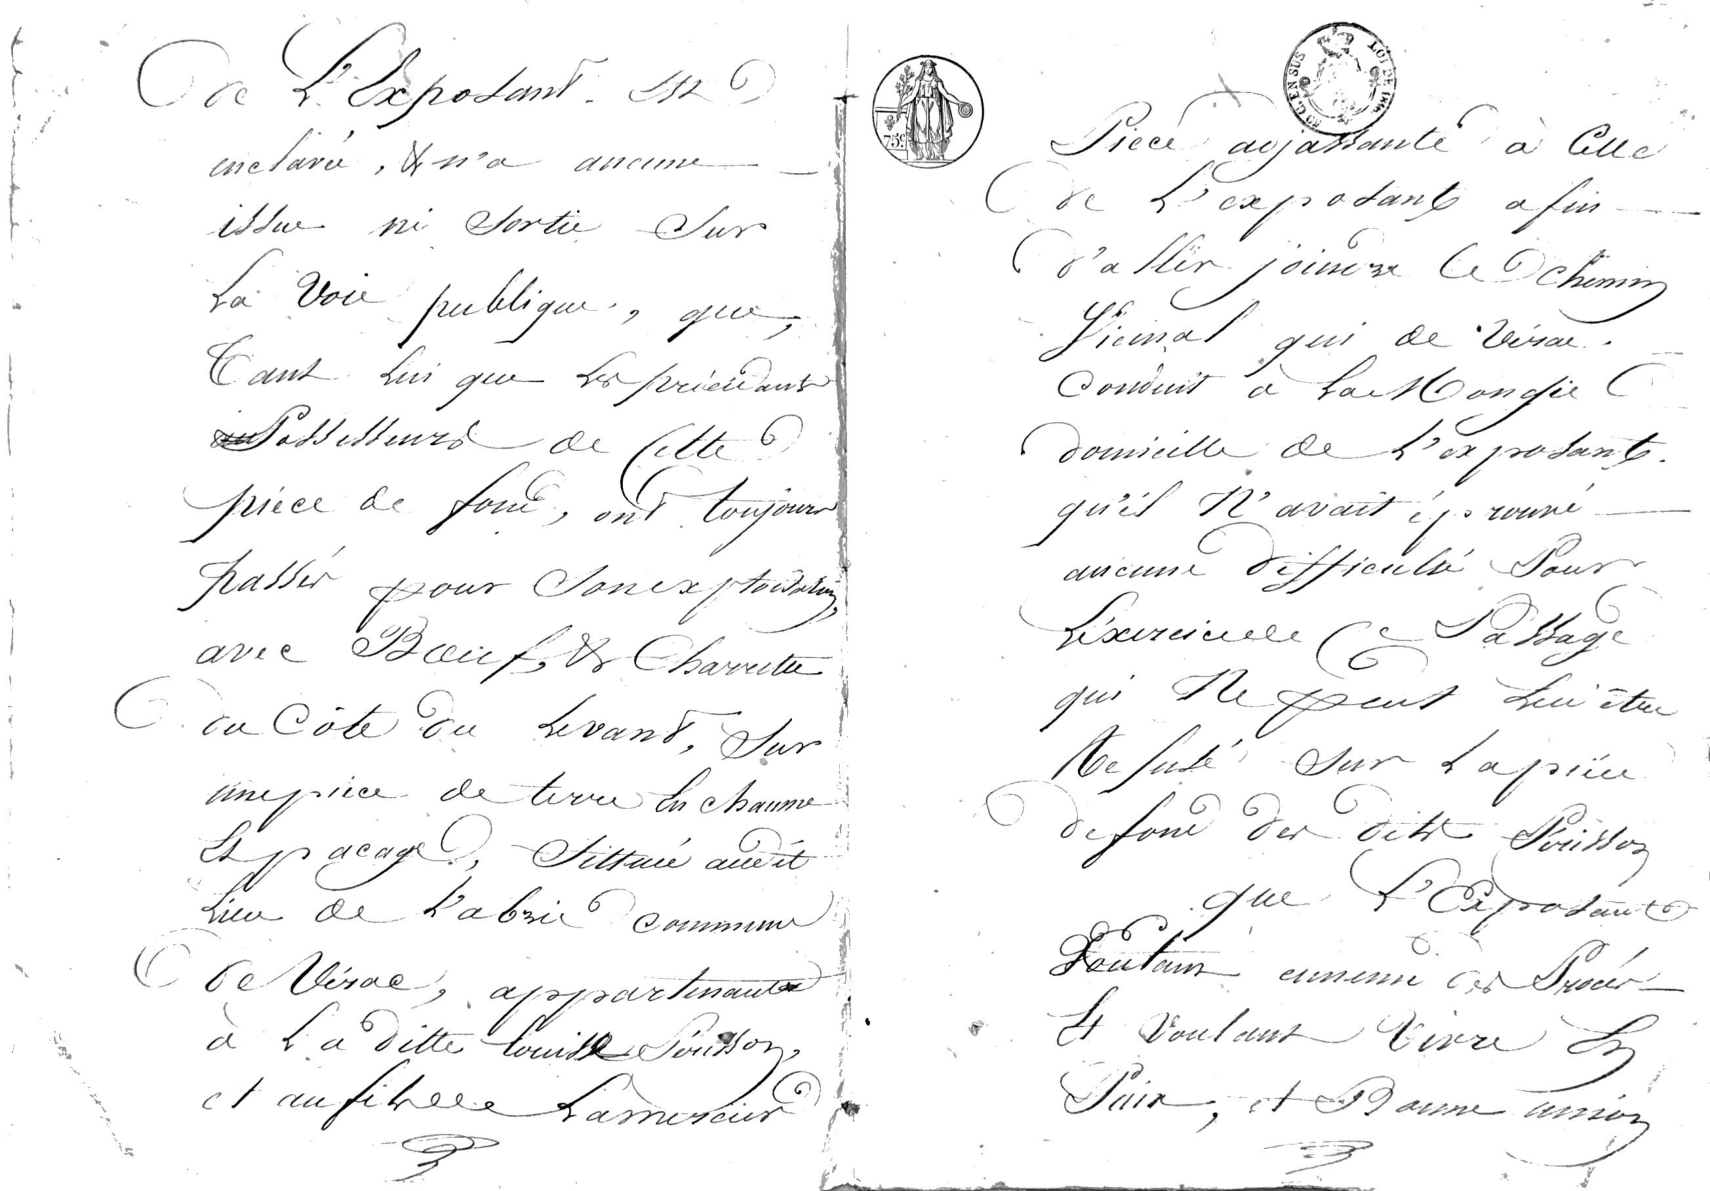 de L'Exposant. Est
enclavé, & n'a aucune
issue ni Sortie Sur
La Voie publique, que,
Tant Lui que Les précédants
Possesseurs de Cette
piéce de fond, ont toujours
passér pour Son exploitation,
avec Bœufs, & Charrette
du Côte du Levant, Sur
une piéce de terre En chaume
Et pacage, Sittuée audit
Lieu de L'abrie commune
de Vérac, appartenante
à La ditte Louise Pouisson,
et au fils Lamercier
75c
50 C. EN SUS
LOI DE
Piéce adjassante à Celle
de L'exposant afin
d'aller joindre Le Chemin
Vicinal qui de Vérac.
Conduit à La Mongie
domicille de L'exposant.
qu'il N'avait éprouvé
aucune difficulté Pour
L'éxercice Ce Passage
qui Ne peut Lui être
Refusé Sur La piéce
de fond des dits Pouisson
que L'Exposant
Voulant ennemi des Procés
Et Voulant Vivre En
Paix, et Bonne union